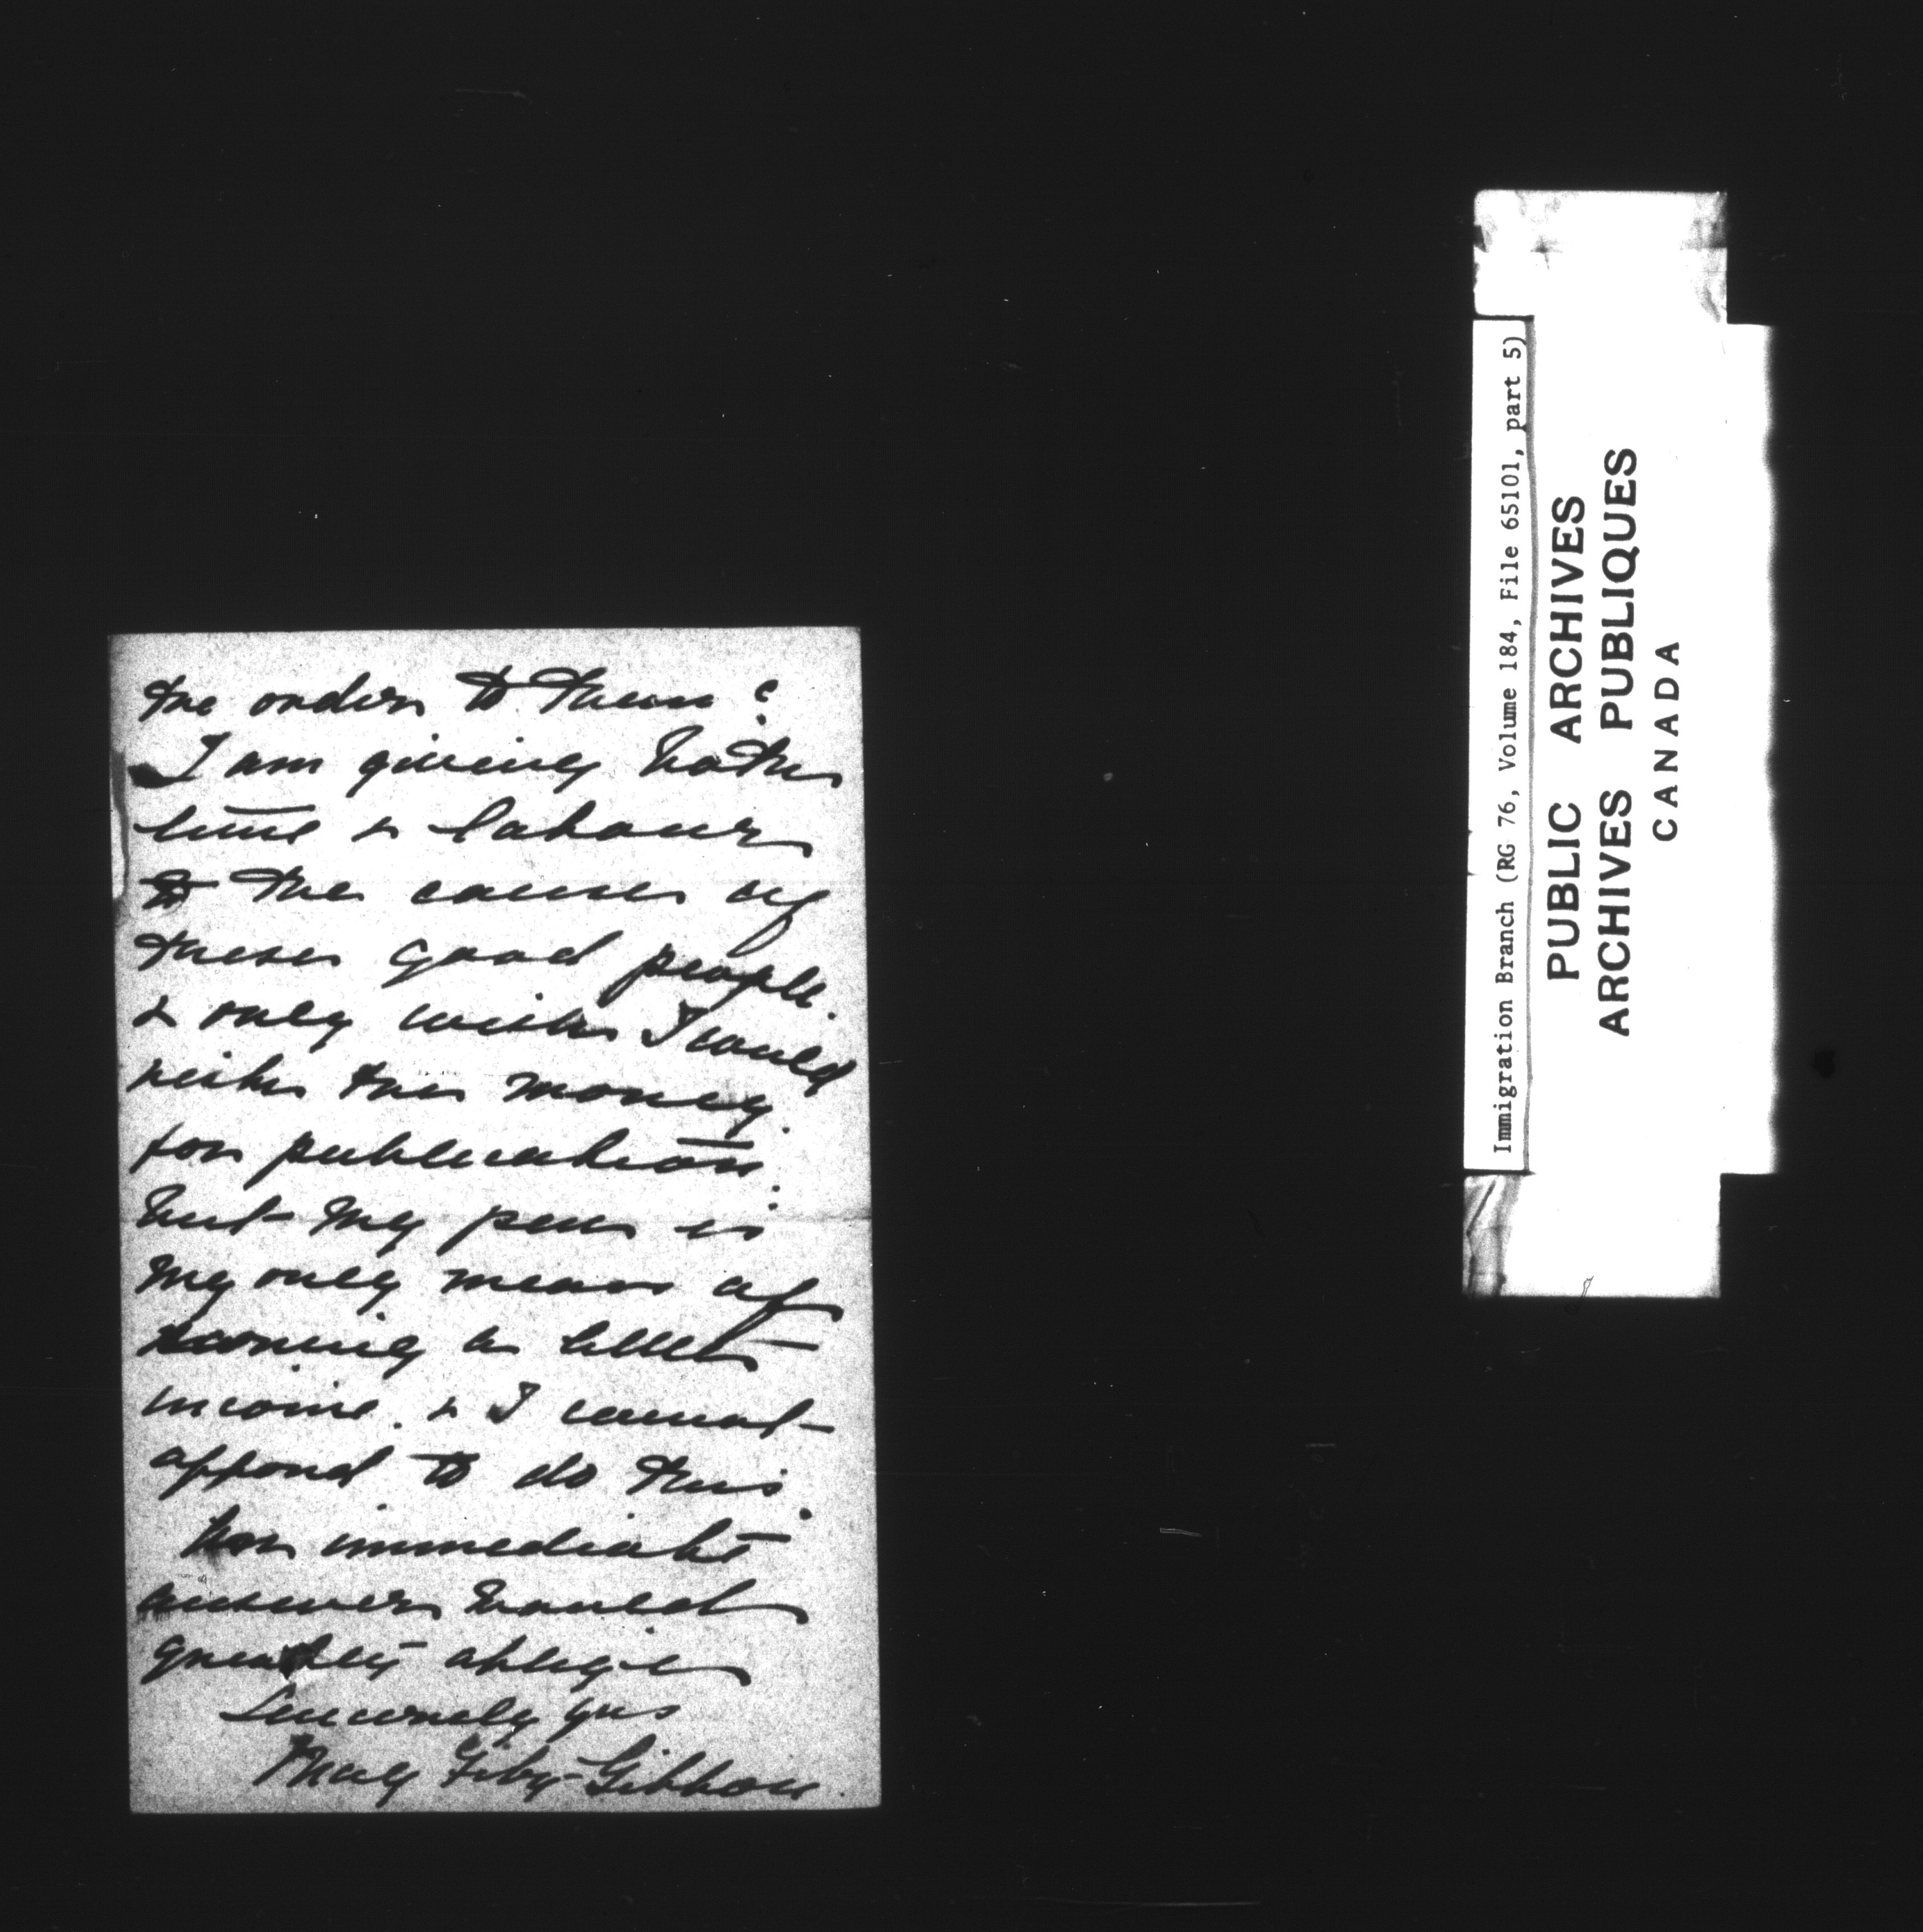 the order to them?
I am giving both
time & labour
to the cause of
these good people.
& only wish I could
risk the money
for publication.
but my pen is
my only means of
earning a little
income. & I cannot
afford to do this.
An immediate
answer would
greatly oblige
Sincerely yrs
Mary Fitz-Gibbon
Immigration Branch (RG 76, Volume 184, File 65101, part 5)
PUBLIC ARCHIVES
ARCHIVES PUBLIQUES
CANADA